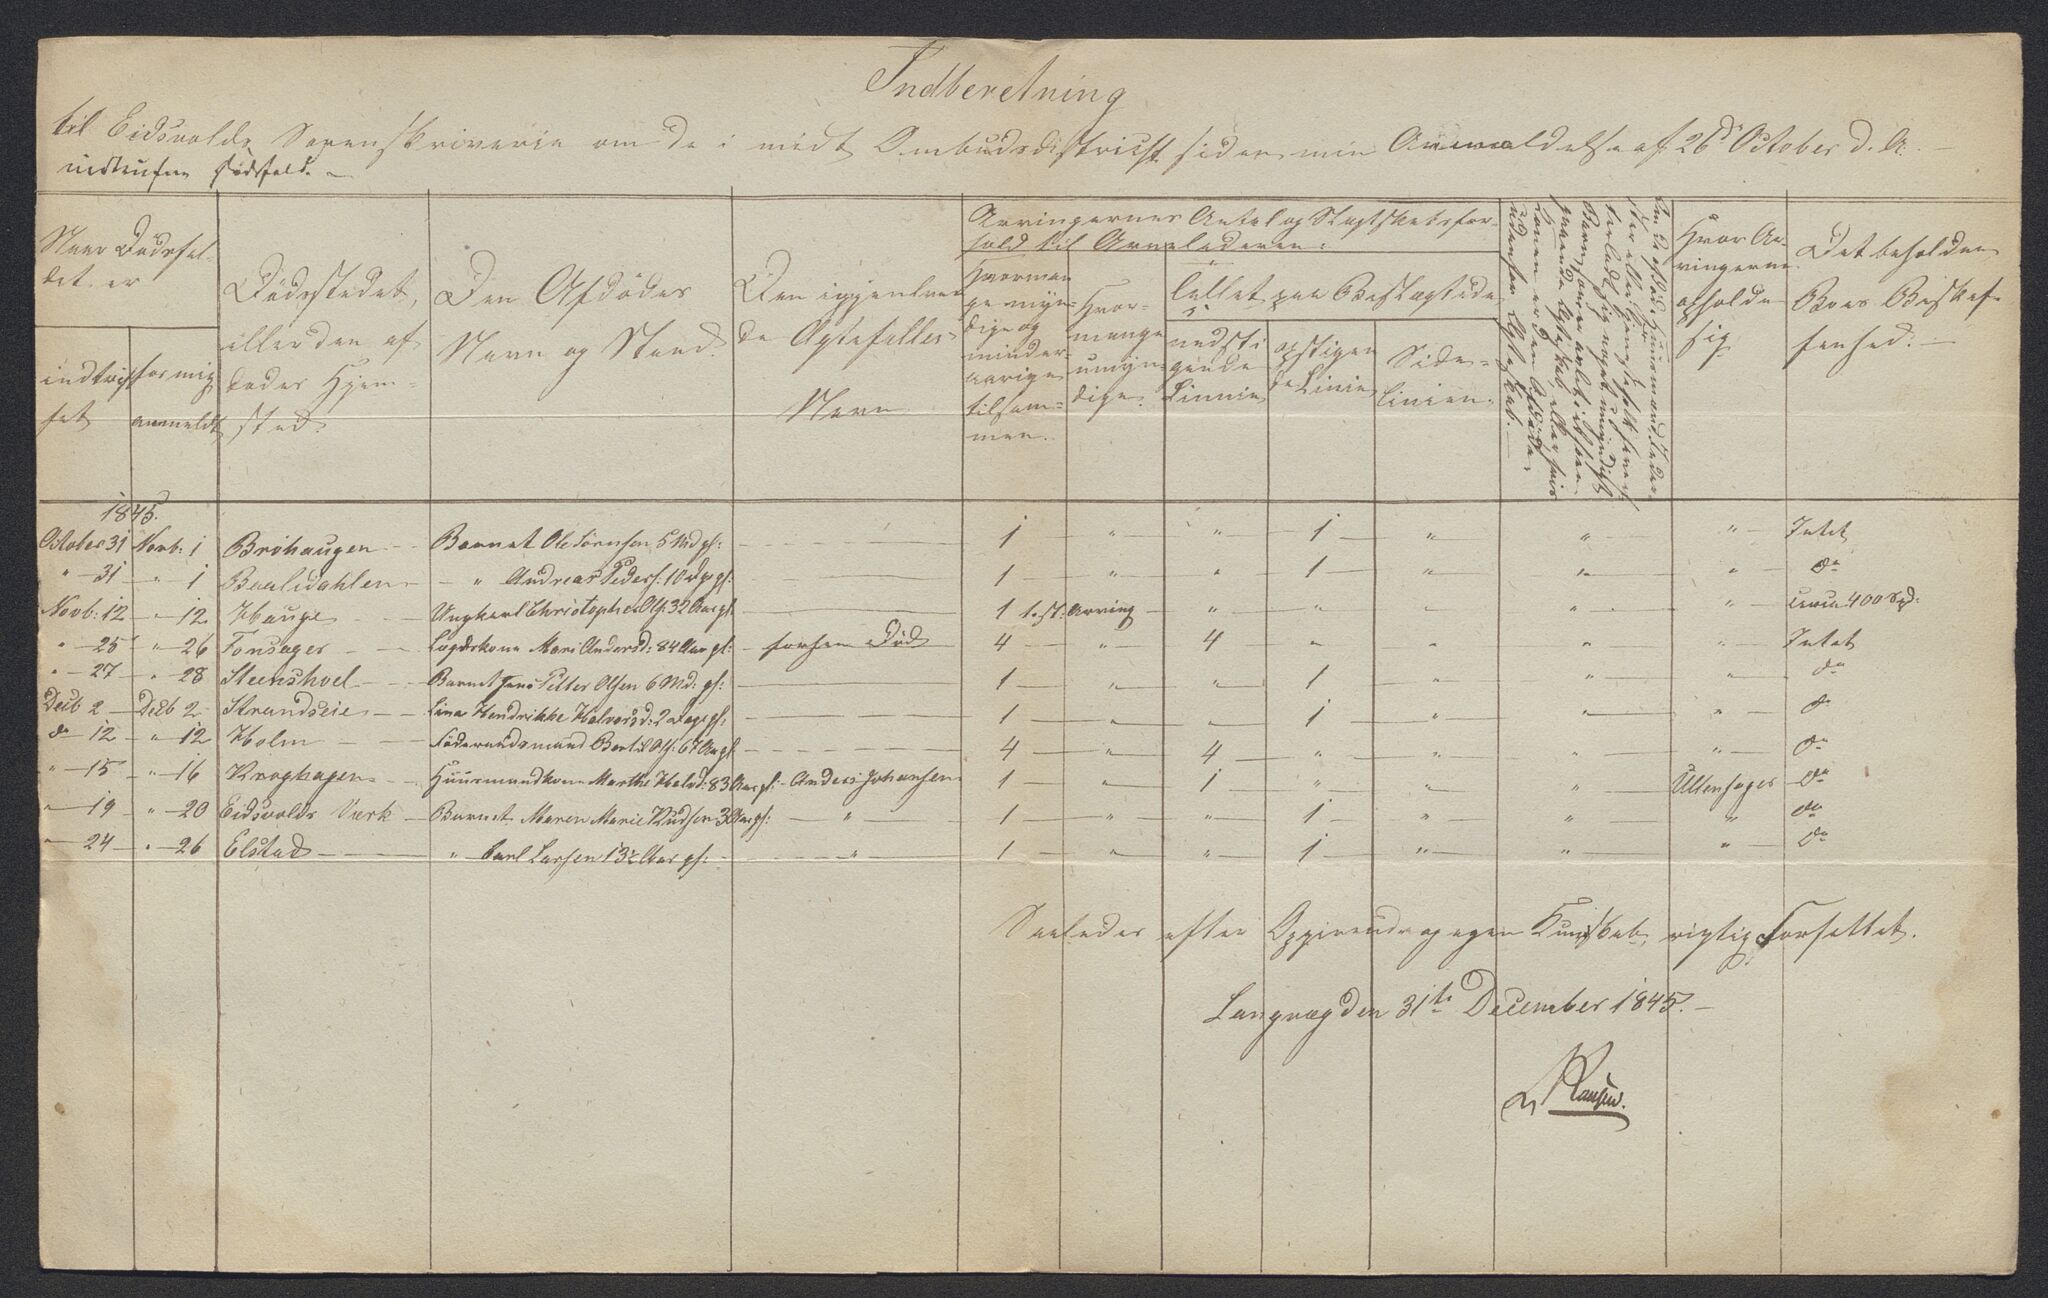 Indberetning
til Eidsvolds Sorenskriverie om de i mit Ombudsdistrict siden min Anmældelse af 26de October d. A.
indtrufne Dødsfald.
Naar Dødsfaldet er
indtruffet
for mig anmeldt
Dødsstedet, eller den afdødes Hjemsted.
Den Afdødes Navn og Stand.
Den igjenlevende Ægtefælles Navn
Arvingernes Antal og Slægtskabsforhold til Arveladeren:
Hvormange myndige og mindreaarige tilsammen.
Hvormange umyndige.
Tallet paa Beslægtede i
nedstigende Linnie
opstigende Linie
Sidelinien.
Hvor Arvingerne opholde sig
Det beholdne Boes Beskaffenhed.
1845.
October 31 Novb: 1 Bröhaugen Barnet Ole Sörensen 5 Md gl: 1 " " 1 " " " Intet
" 31 " 1 Bauldahlen " Andreas Peders: 10 Dage gl: 1 " " 1 " " " do
Novb: 12 " 12 Hauge Ungkarl Christopher Ols: 32 Aar gl: 1 test: Arving " " " " " circa 400 Spd:
" 25 " 26 Tonsager Lægdskone Mari Andersd: 84 Aar gl: forhen Död 4 " 4 " " " " Intet
" 27 " 28 Steenshoel Barnet Jens Petter Olsen 6 Md: gl: 1 " " 1 " " " do
Decb 2 Decb 2 Strandseie Lina Hendrikke Halvorsd: 2 Dage gl: 1 " " 1 " " " do
do 12 " 12 Holm Föderaadsmand Bertil Ols: 67 Aar gl: 4 " 4 " " " do
" 15 " 16 Kroghagen Huusmandkone Marthe Halvd: 83 Aar gl: Anders Johansen 1 " 1 " " " Ullensager do
" 19 " 20 Eidsvolds Værk Barnet Maren Marie Knudsen 3 Aar gl: " 1 " " 1 " " " do
" 24 " 26 Elstad " Carl Larsen 13½ Aar gl: " 1 " " 1 " " " do
Saaledes efter Opgivende og egen Kundskab, rigtig Forfattet.
Langvæg den 31te December 1845.